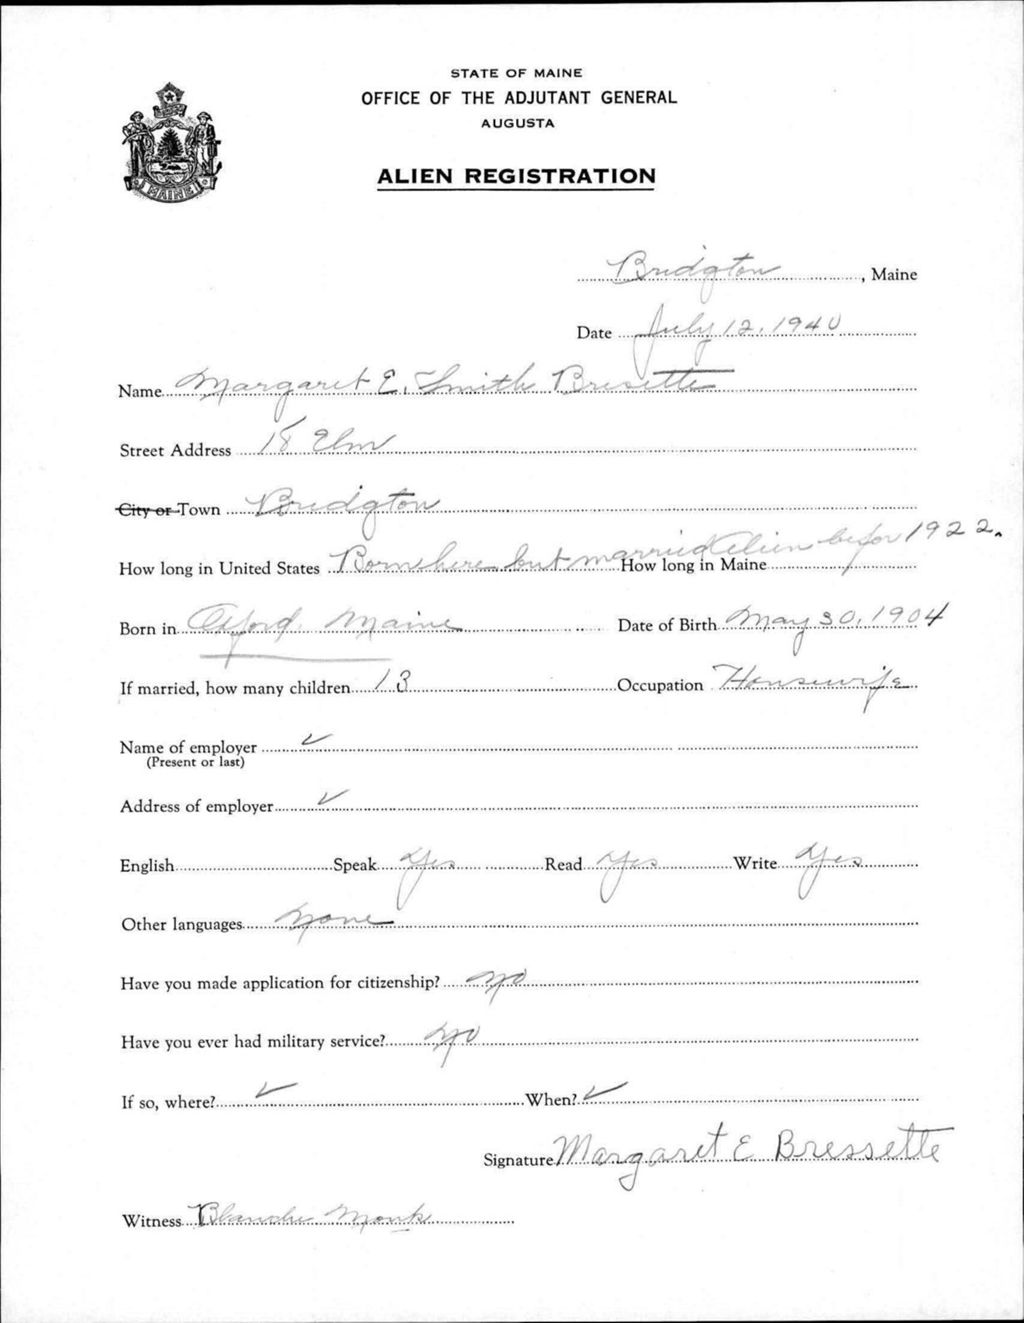 STATE OF MAINE
OFFICE OF THE ADJUTANT GENERAL
AUGUSTA
ALIEN REGISTRATION
MAINE
Bridgton, Maine
Date July 12, 1940
Name Margaret E. Smith Bresette
Street Address 18 Elm
City or Town Bridgton
How long in United States Born here but married Alien befor 1922. How long in Maine
Born in Oxford Maine Date of Birth May 30, 1904
If married, how many children 13 Occupation Housewife
Name of employer ✓
(Present or last)
Address of employer ✓
English Speak Yes Read Yes Write Yes
Other languages None
Have you made application for citizenship? No
Have you ever had military service? No
If so, where? ✓ When? ✓
Signature Margaret E Bressette
Witness Blanche Monk